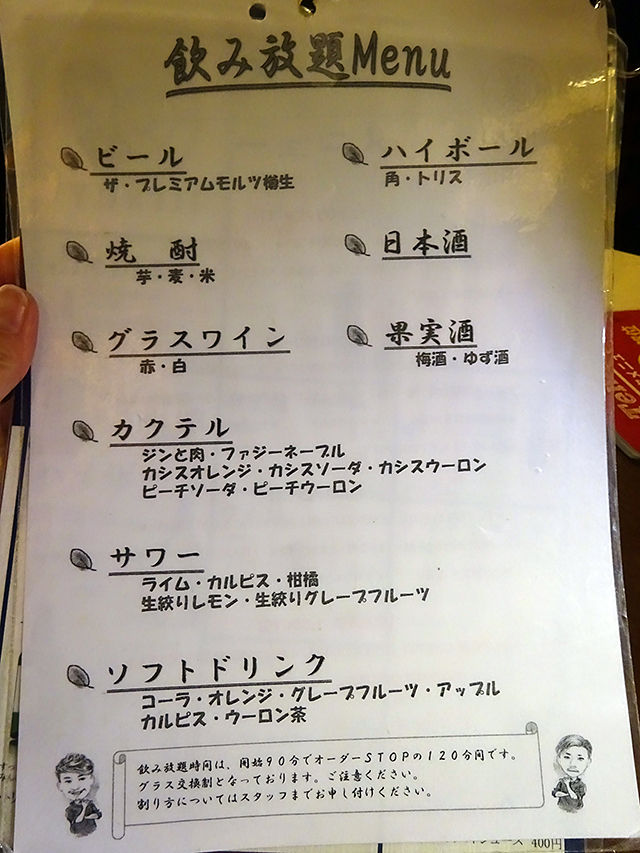 飲み放題Menu
ビール
ザ・プレミアムモルツ樽生
ハイボール
角・トリス
焼 酎
芋・麦・米
日本酒
グラスワイン
赤・白
果実酒
梅酒・ゆず酒
カクテル
ジンと肉・ファジーネーブル
カシスオレンジ・カシスソーダ・カシスウーロン
ピーチソーダ・ピーチウーロン
サワー
ライム・カルピス・柑橘
生絞りレモン・生絞りグレープフルーツ
ソフトドリンク
コーラ・オレンジ・グレープフルーツ・アップル
カルピス・ウーロン茶
飲み放題時間は、開始90分でオーダーSTOPの120分間です。
グラス交換制となっております。ご注意ください。
割り方についてはスタッフまでお申し付けください。
400円